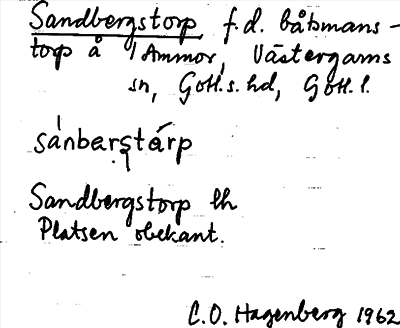 Sandbergstorp f.d. båtsmans-
torp å 1 Ammor, Västergarns
sn, Gotl.s.hd, Gotl. l.
sánbarstárp
Sandbergstorp lh
Platsen obekant.
C.O. Hagenberg 1962